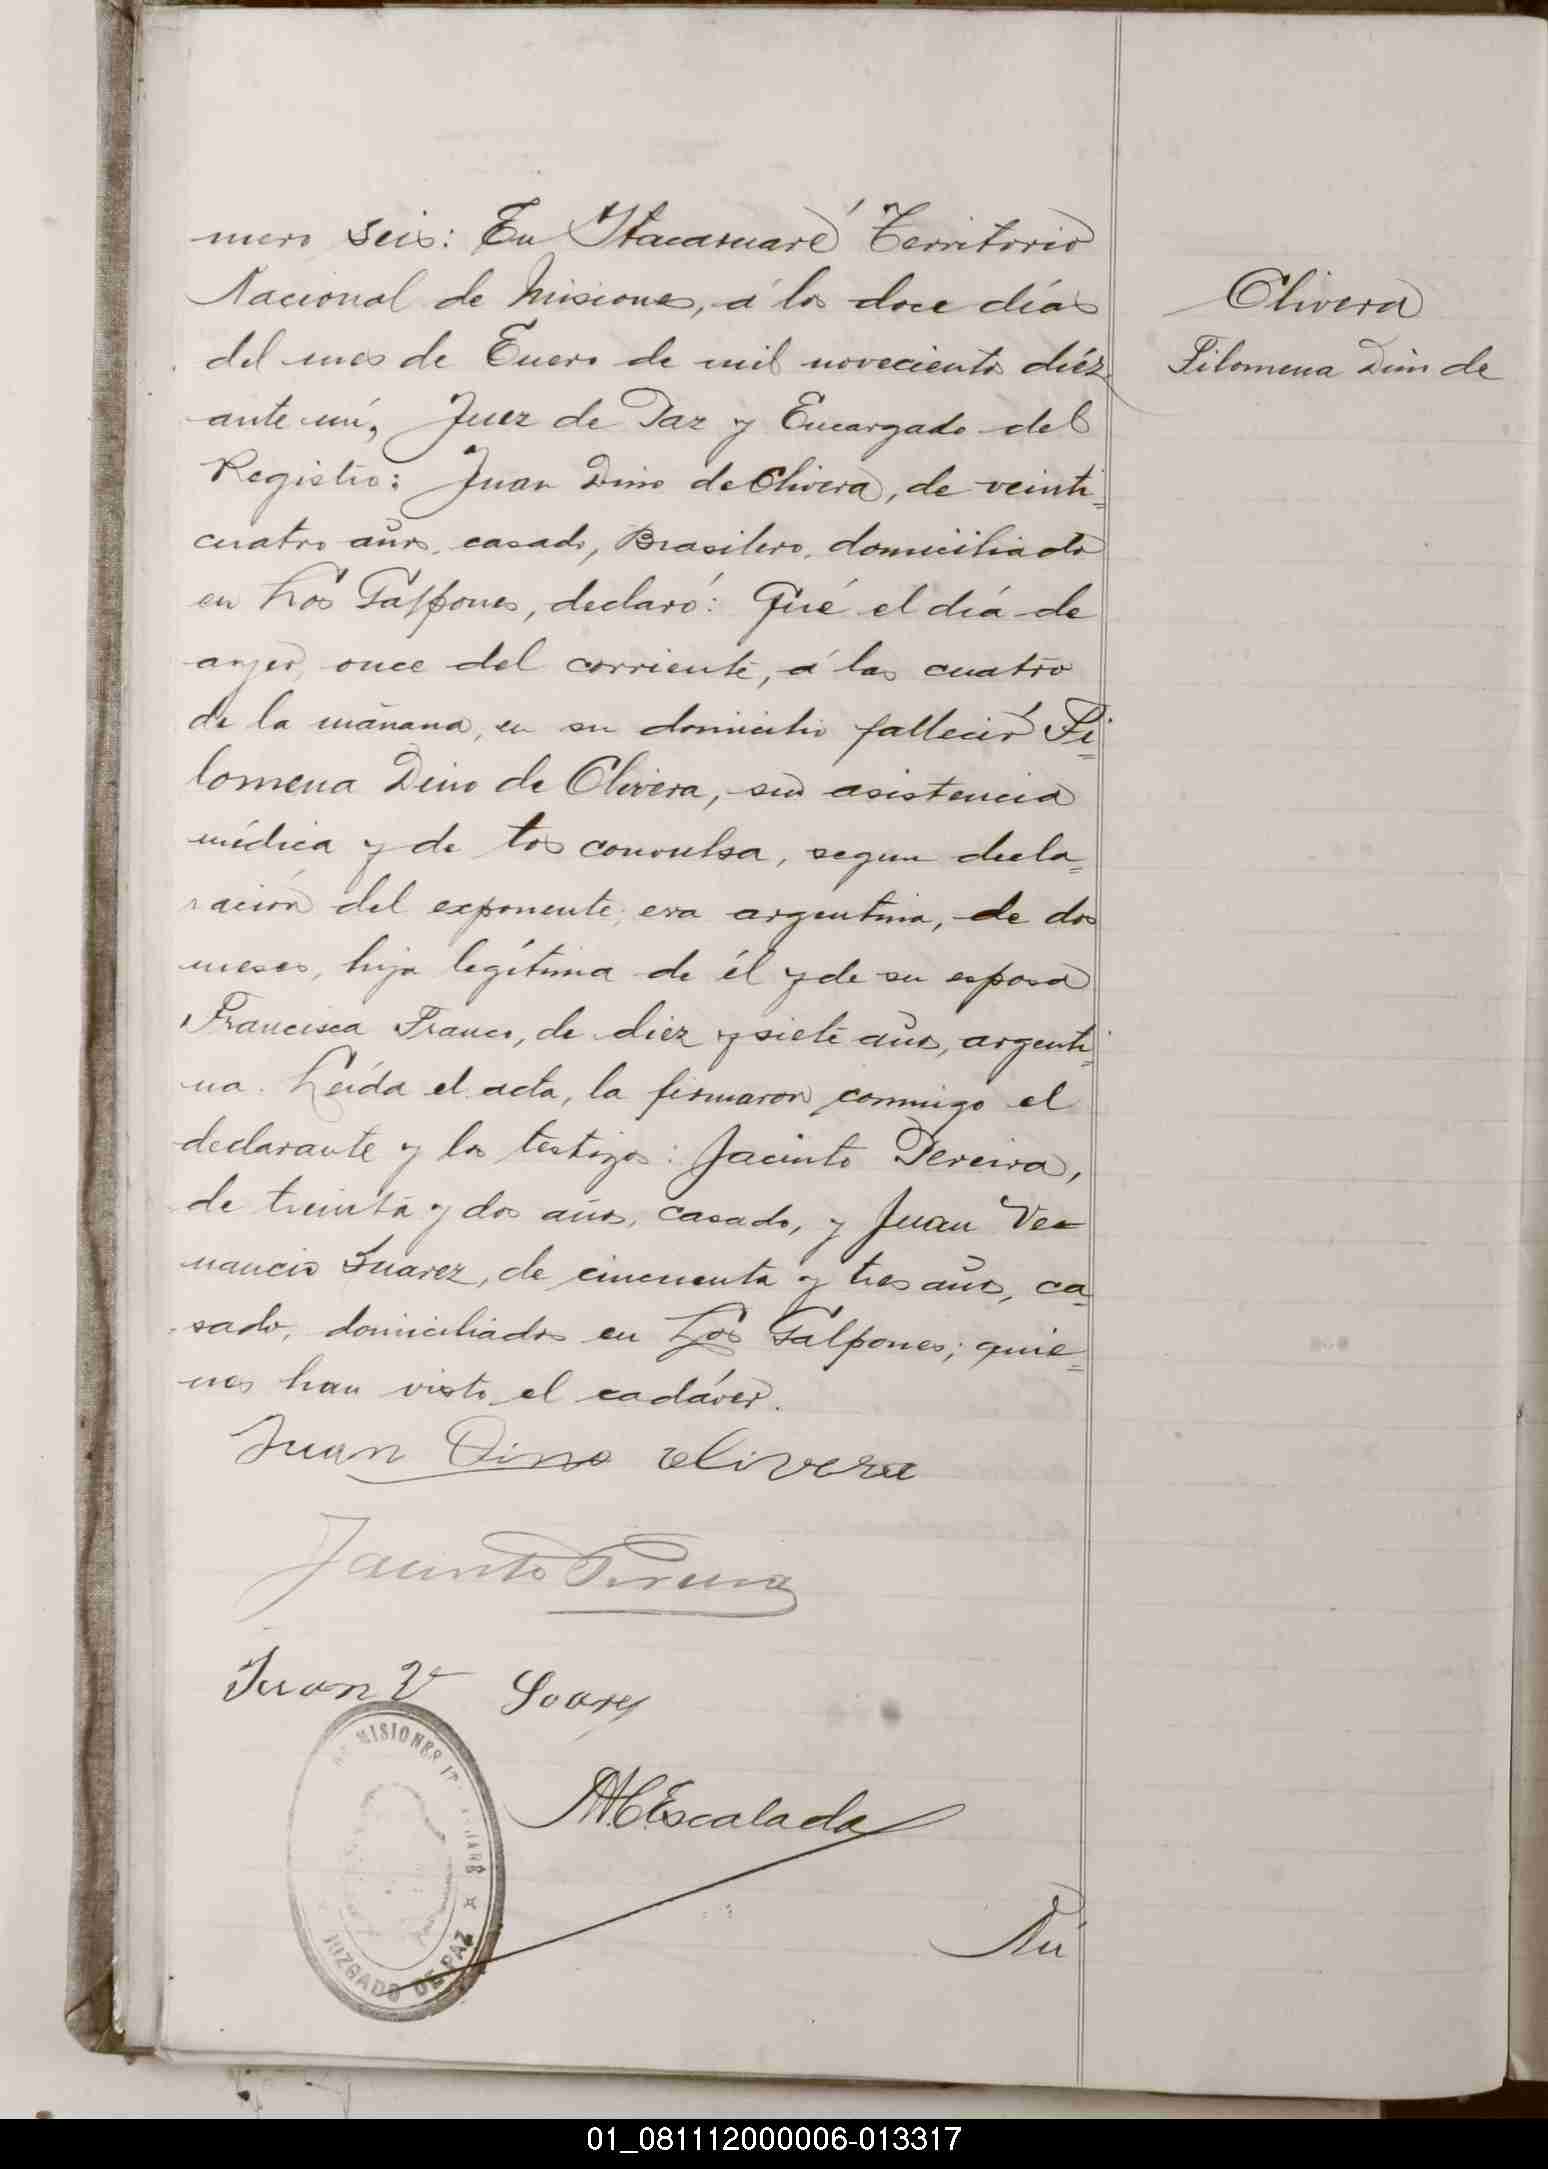 mero seis: En Itacaruaré Territorio
Nacional de Misiones, á los doce días
del mes de Enero de mil novecientos diéz
ante mí, Juez de Paz y Encargado del
Registro: Juan Dino de Olivera, de veinti=
cuatro años, casado, Brasilero, domiciliado
en Los Galpones, declaró: Qué el día de
ayer, once del corriente, á las cuatro
de la mañana, en su domicilio falleció Fi=
lomena Dino de Olivera, sin asistencia
médica y de tos convulsa, segun decla=
ración del exponente; era argentina, de dos
meses, hija legítima de él y de su esposa
Francisca Franco, de diez y siete años, argenti=
na. Leída el acta, la firmaron conmigo el
declarante y los testigos: Jacinto Pereira,
de treinta y dos años, casado, y Juan Ve=
nancio Suarez, de cincuenta y tres años, ca=
sado, domiciliados en Los Galpones; quie=
nes han visto el cadáver.
Juan Dino olivera
Jacinto Pereira
Juan Ve Soarez
MISIONES
JUZGADO DE PAZ
Escalada
Nú
Olivera
Filomena Dino de
01_081112000006-013317